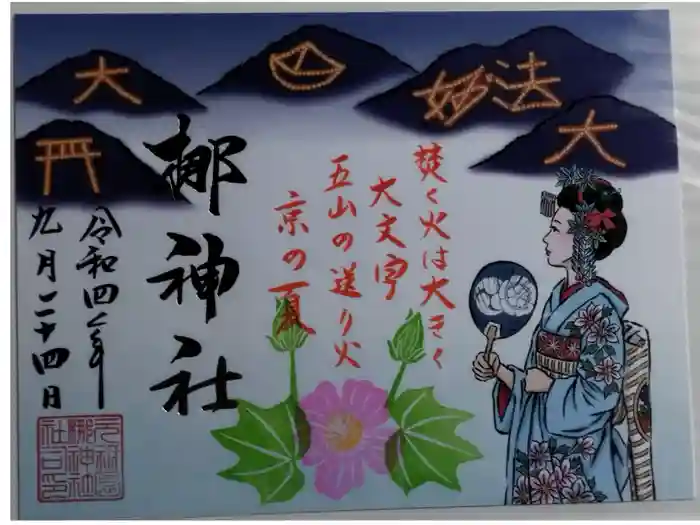 大
妙法
大
焚く火は大きく
大文字
五山の送り火
京の夏
梛神社
令和四年
九月二十四日
元祇園
梛神社